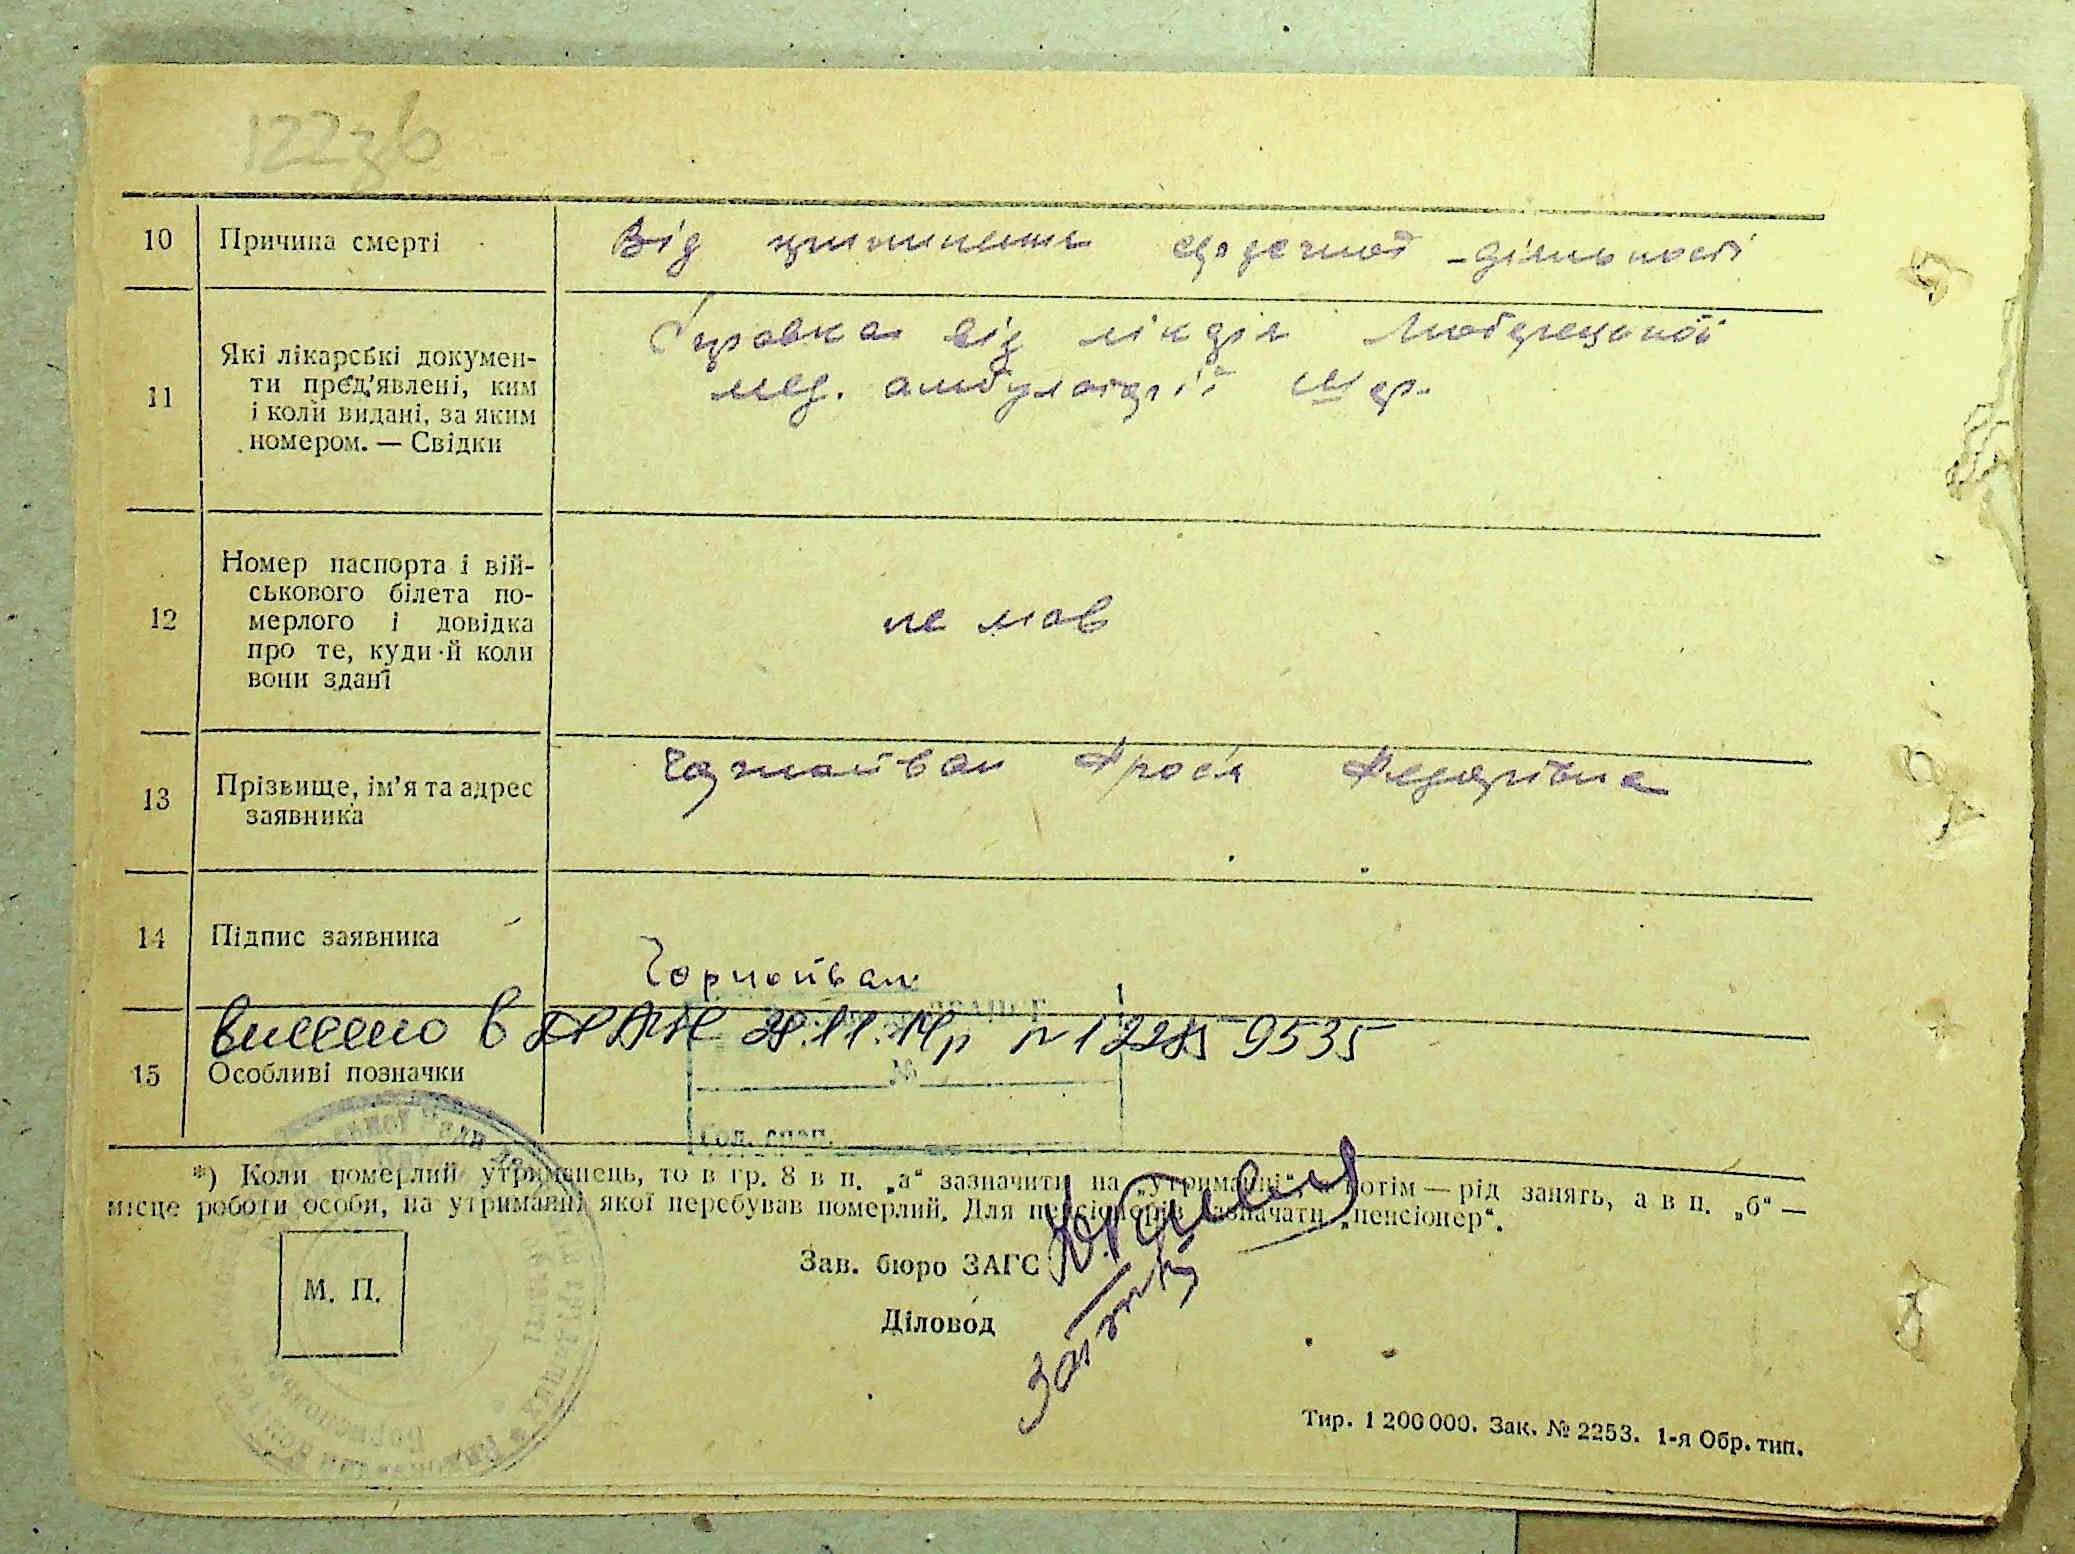 122зв
10 Причина смерті Від припинення сердечної діяльності
11 Які лікарські докумен-
ти пред'явлені, ким
і коли видані, за яким
номером. — Свідки
Справка від лікаря
мед. амбулаторії
12 Номер паспорта і вій-
ськового білета по-
мерлого і довідка
про те, куди й коли
вони здані
не мав
13 Прізвище, ім'я та адрес
заявника
Чорнойван Фрося Федорівна
14 Підпис заявника
Чорнойван
внесено в ДРАЦС 28.11.14р № 12285 9535
15 Особливі позначки
№
*) Коли померлий утриманець, то в гр. 8 в п. „а“ зазначити на „утриманні“, а потім — рід занять, а в п. „б“ —
місце роботи особи, на утриманні якої перебував померлий. Для пенсіонерів зазначати „пенсіонер“.
Зав. бюро ЗАГС
М. П.
Діловод
Тир. 1 200 000. Зак. № 2253. 1-я Обр. тип.